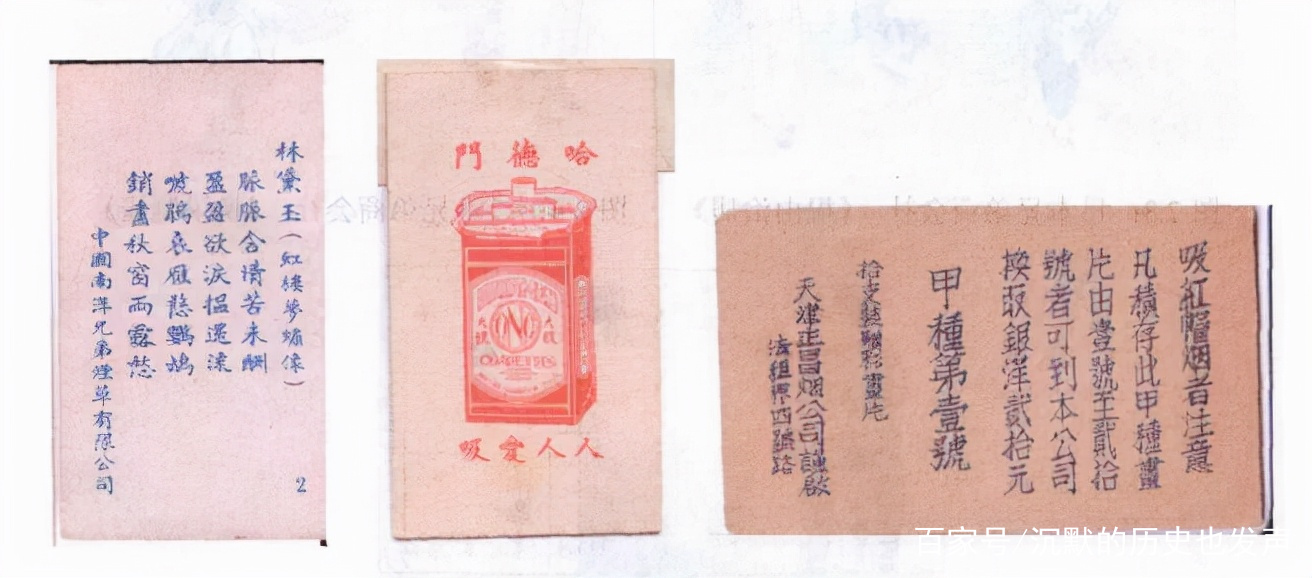 林黛玉(紅樓夢
脉脉含情苦未酬
盈盈欲淚搵
哀雁愁鸚鵡
銷盡秋窗雨露愁
中國南洋兄弟煙草有限公司
2
哈德門
人人愛吸
吸紅烟者注意
凡積存此甲種畫
片由壹號至貳拾
號者可到本公司
換取銀洋貳拾元
甲種第壹號
拾支裝畫片
天津正昌烟公司謹啟
法租界四號路
百家号/沉默的历史也发声